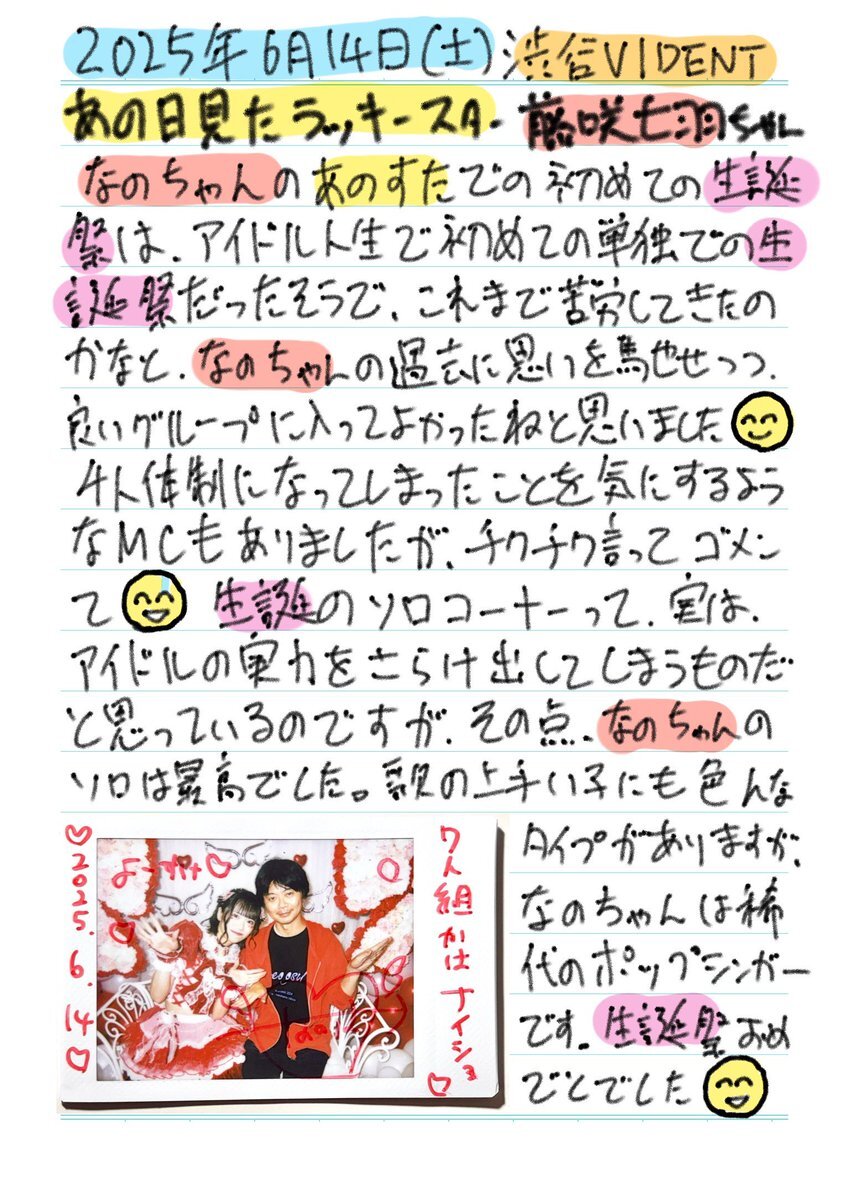 2025年6月14日(土)渋谷VIDENT
あの日見たラッキースター 藤咲七羽ちゃん
なのちゃんのあのすたでの初めての生誕
祭は、アイドル人生で初めての単独での生
誕祭だったそうで、これまで苦労してきたの
かなと、なのちゃんの過去に思いを馬也せつつ、
良いグループに入ってよかったねと思いました
4人体制になってしまったことを気にするよう
なMCもありましたが、チクチク言ってゴメン
て 生誕のソロコーナーって、実は、
アイドルの実力をさらけ出してしまうものだ
と思っているのですが、その点、なのちゃんの
ソロは最高でした。歌の上手い子にも色んな
タイプがありますが、
なのちゃんは稀
代のポップシンガー
です。生誕祭おめ
でとでした
♡2025.6.14♡
7人組かはナイショ♡